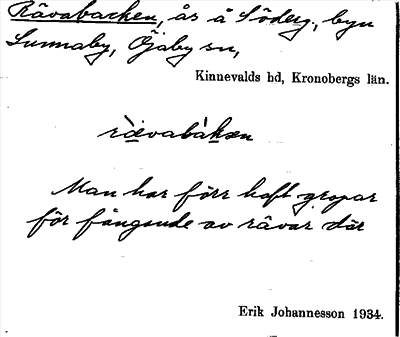 Rävabacken, ås å Söderg., byn
Sunnaby, Öjaby sn,
Kinnevalds hd, Kronobergs län.
rävabàkən
Man har förr haft gropar
för fångende av rävar där
Erik Johannesson 1934.